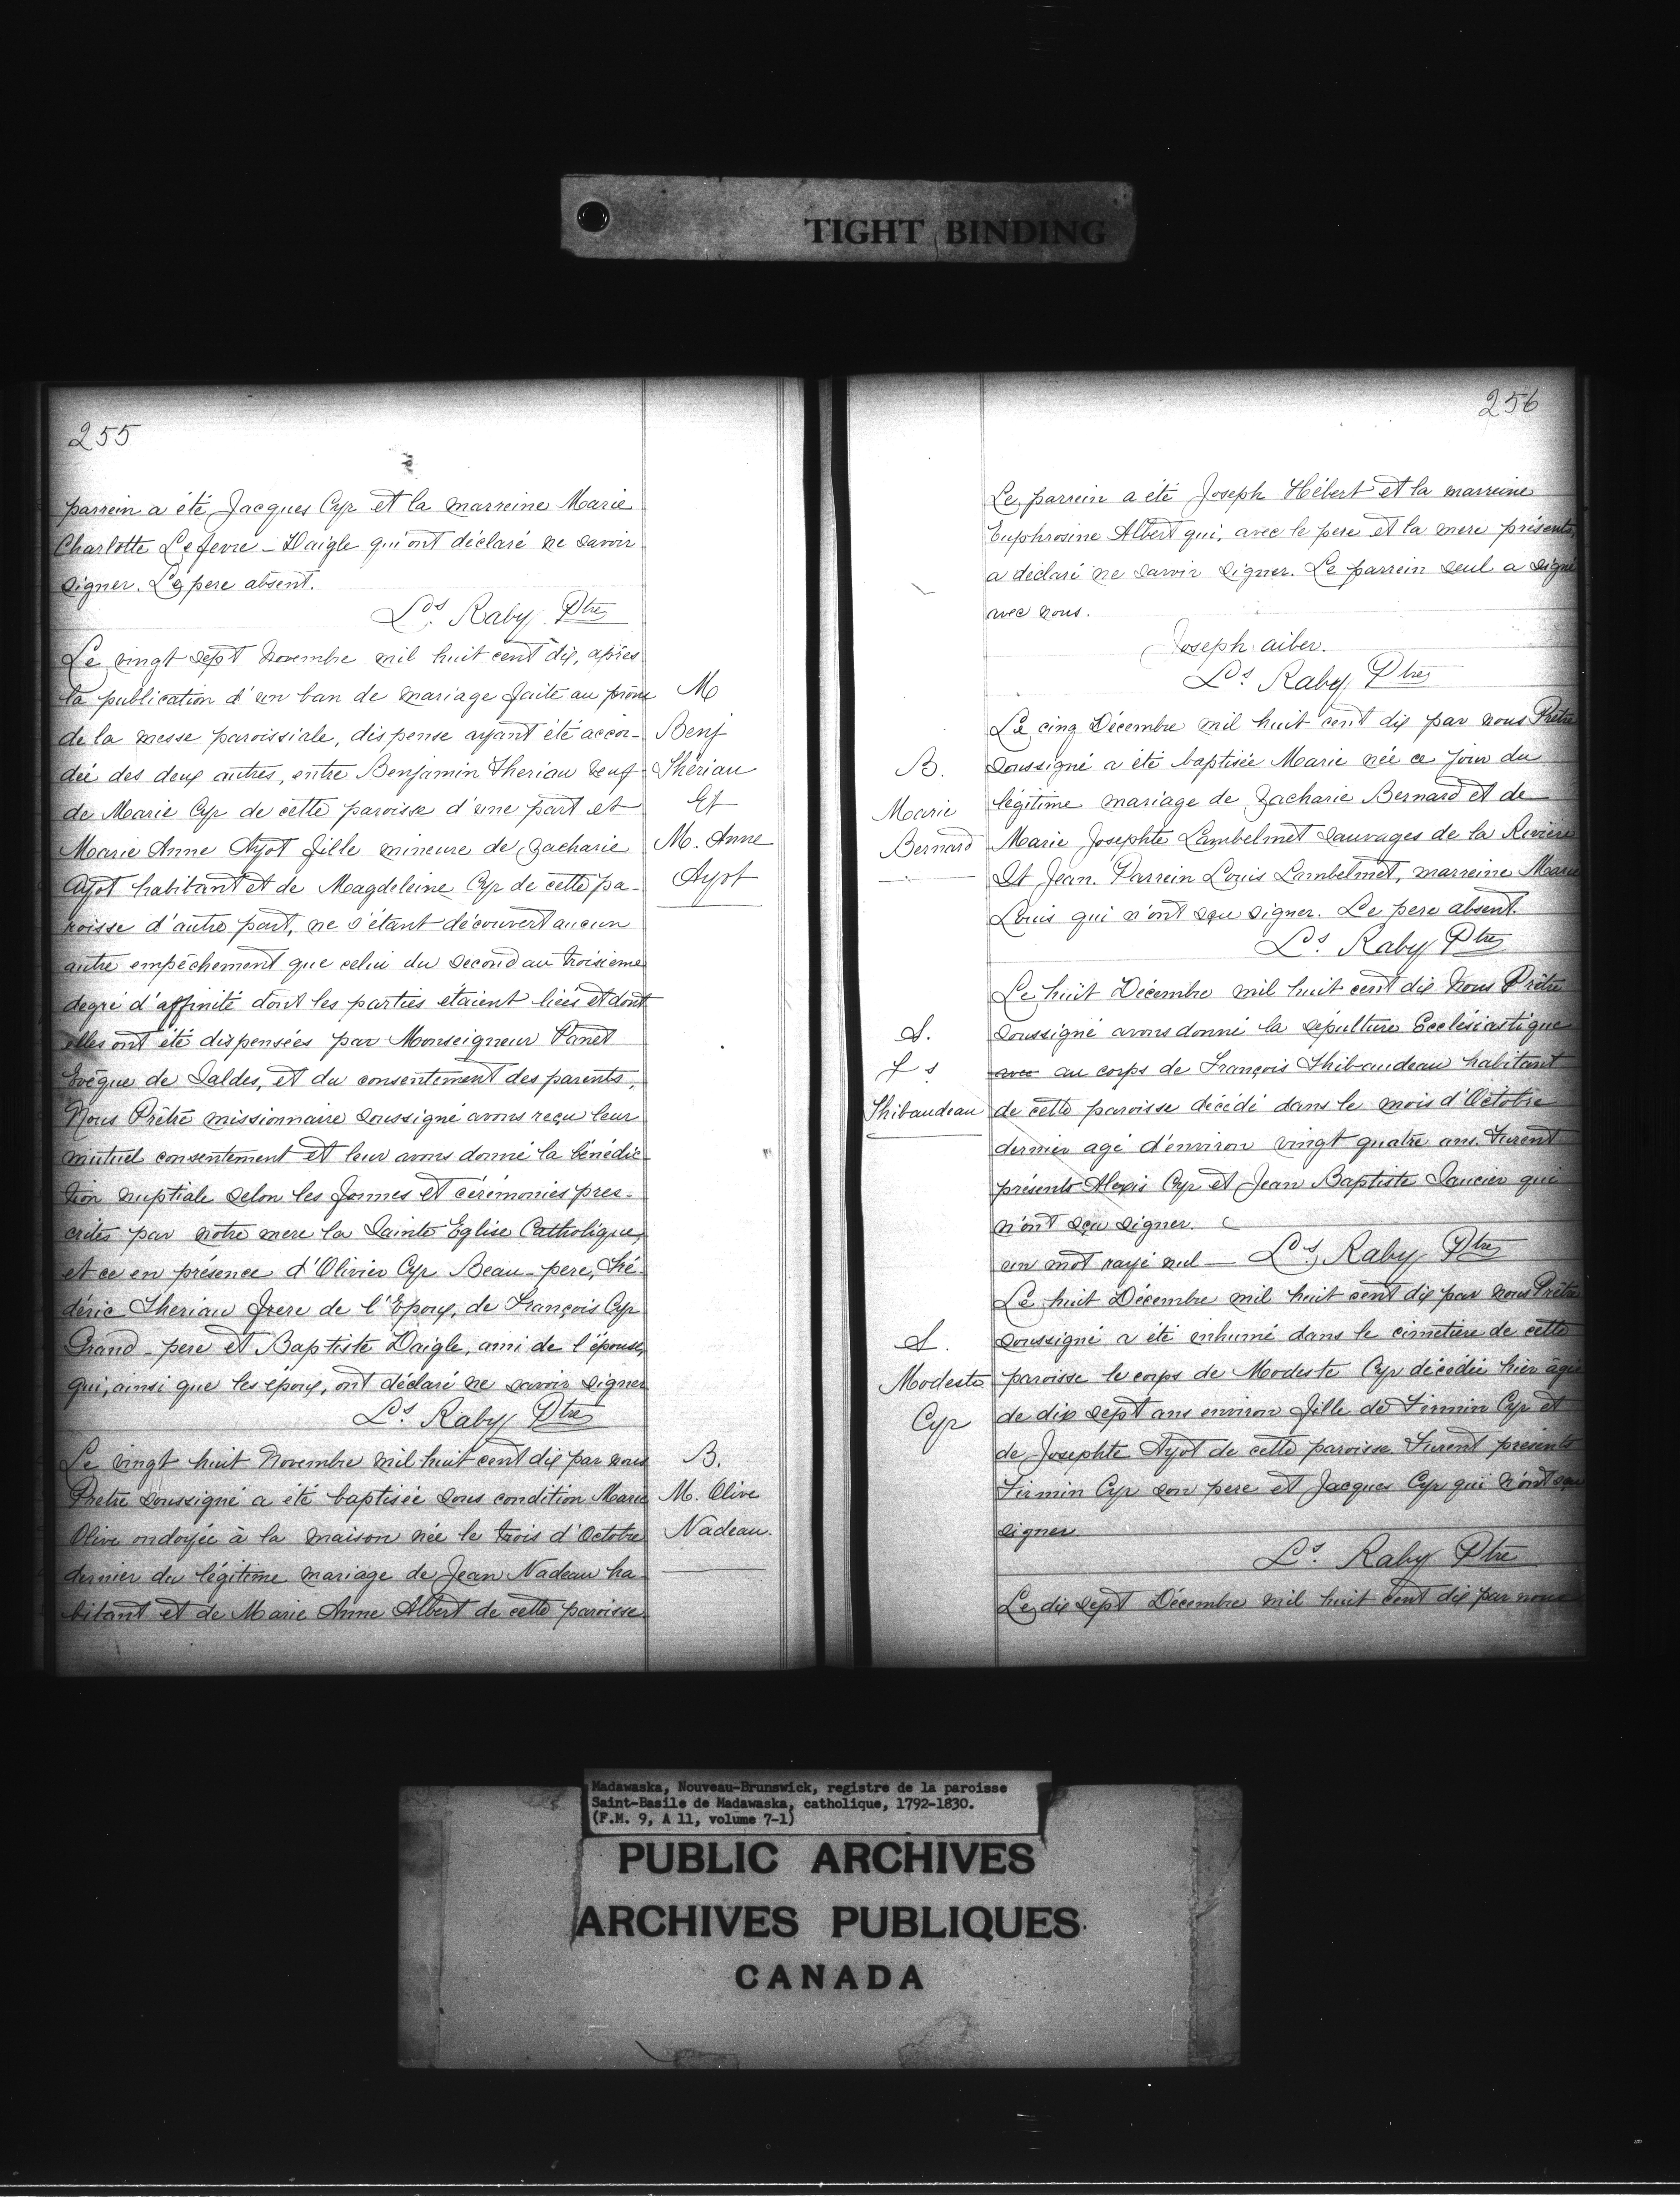 TIGHT BINDING
255
parrein a été Jacques Cyr et la marreine Marie
Charlotte Lefevre - Daigle qui ont déclaré ne savoir
signer. Le pere absent.
Ls. Raby Ptre
Le vingt sept Novembre mil huit cent dix, après
la publication d'un ban de mariage faite au prône
de la messe paroissiale, dispense ayant été accor-
dée des deux autres, entre Benjamin Theriau veuf
de Marie Cyr de cette paroisse d'une part et
Marie Anne Ayot fille mineure de Zacharie
Ayot habitant et de Magdeleine Cyr de cette pa-
roisse d'autre part, ne s'étant découvert aucun
autre empêchement que celui du second au troisieme
degré d'affinité dont les parties étaient liées et dont
elles ont été dispensées par Monseigneur Panet
Evêque de Saldes, et du consentement des parents,
Nous Prêtre missionnaire soussigné avons reçu leur
mutuel consentement et leur avons donné la bénédic
tion nuptiale selon les formes et cérémonies pres-
crites par notre mere la Sainte Eglise Catholique,
et ce en présence d'Olivier Cyr Beau-pere, Fré-
déric Theriau frere de l'Epoux, de François Cyr
Grand-pere et Baptiste Daigle, ami de l'épouse,
qui, ainsi que les époux, ont déclaré ne savoir signer
Ls. Raby Ptre
Le vingt huit Novembre mil huit cent dix par nous
Pretre soussigné a été baptisée sous condition Marie
Olive ondoyée à la maison née le trois d'Octobre
dernier du légitime mariage de Jean Nadeau ha
bitant et de Marie Anne Albert de cette paroisse
M
Benj
Thériau
Et
M. Anne
Ayot
B.
M. Olive
Nadeau.
256
Le parrein a été Joseph Hébert et la marreine
Euphrosine Albert qui, avec le pere et la mere présents,
a déclaré ne savoir signer. Le parrein seul a signé
avec nous.
Joseph aiber.
Ls. Raby Ptre
Le cinq Décembre mil huit cent dix par nous Prêtre
soussigné a été baptisée Marie née ce jour du
légitime mariage de Zacharie Bernard et de
Marie Josephte Lambelmet sauvages de la Rivière
St Jean. Parrein Louis Lambelmet, marreine Marie
Louis qui n'ont sçu signer. Le pere absent.
Ls. Raby Ptre
Le huit Décembre mil huit cent dix Nous Prêtre
soussigné avons donné la sépulture Ecclésiastique
avec au corps de François Thibaudeau habitant
de cette paroisse décédé dans le mois d'Octobre
dernier agé d'environ vingt quatre ans. Furent
présents Alexis Cyr et Jean Baptiste Saucier qui
n'ont sçu signer.
un mot rayé nul — Ls. Raby Ptre
Le huit Décembre mil huit cent dix par nous Prêtre
soussigné a été inhumé dans le cimetiere de cette
paroisse le corps de Modeste Cyr décédée hier âgée
de dix sept ans environ fille de Firmin Cyr et
de Josephte Ayot de cette paroisse. Furent présents
Firmin Cyr son pere et Jacques Cyr qui n'ont sçu
signer
Ls. Raby Ptre
Le dix sept Décembre mil huit cent dix par nous
B.
Marie
Bernard
S.
Fs
Thibaudeau
S.
Modeste
Cyr
Madawaska, Nouveau-Brunswick, registre de la paroisse
Saint-Basile de Madawaska, catholique, 1792-1830.
(F.M. 9, A 11, volume 7-1)
PUBLIC ARCHIVES
ARCHIVES PUBLIQUES
CANADA